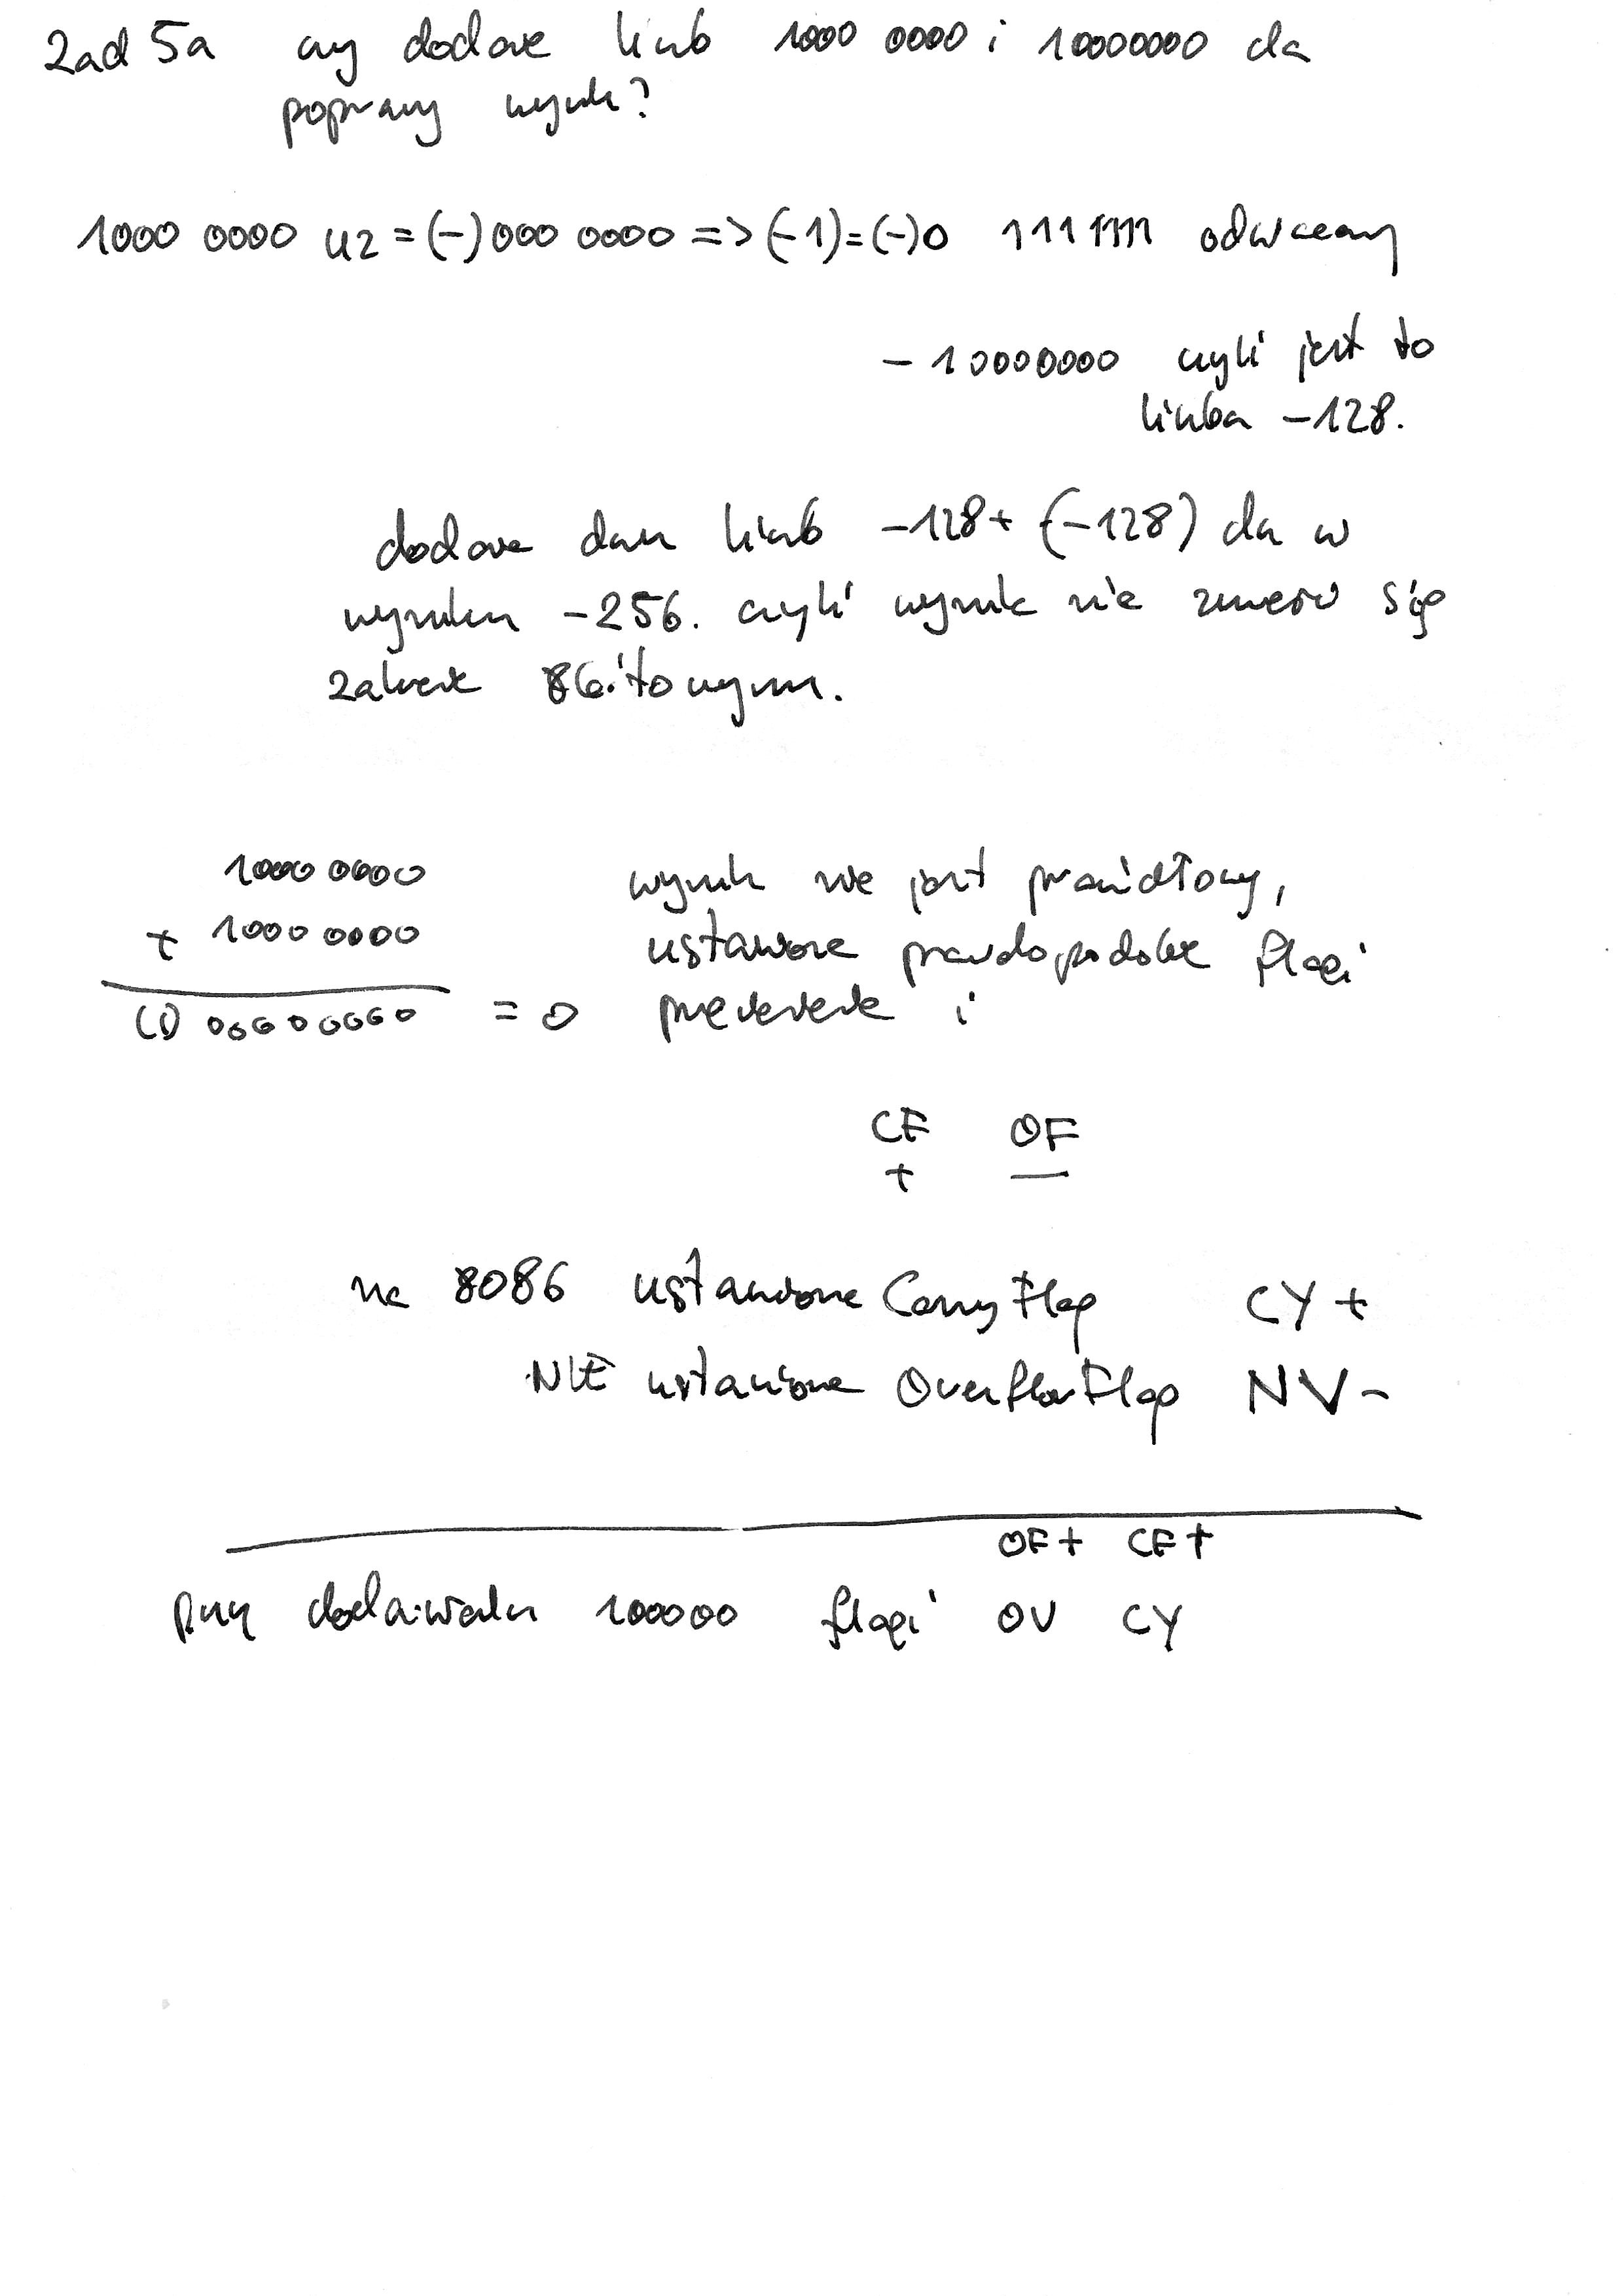 Zad 5a czy dodanie liczb 1000 0000 i 10000000 da
poprawny wynik?
1000 0000 U2 = (-) 000 0000 => (-1) = (-)0 111 1111 odwracamy
- 10000000 czyli jest to
liczba -128.
dodanie liczb -128 + (-128) da w
wyniku -256. czyli wynik nie się
zakresie 8bitowym.
1000 0000 wynik nie jest prawidłowy,
+ 1000 0000 ustawione prawdopodobnie flagi
(1) 00000000 = 0 przeniesienie i
CF OF
+ —
na 8086 ustawione Carry Flag CY +
NIE ustawione Overflow Flag NV -
OF + CF +
przy dodawaniu 100000 flagi OV CY